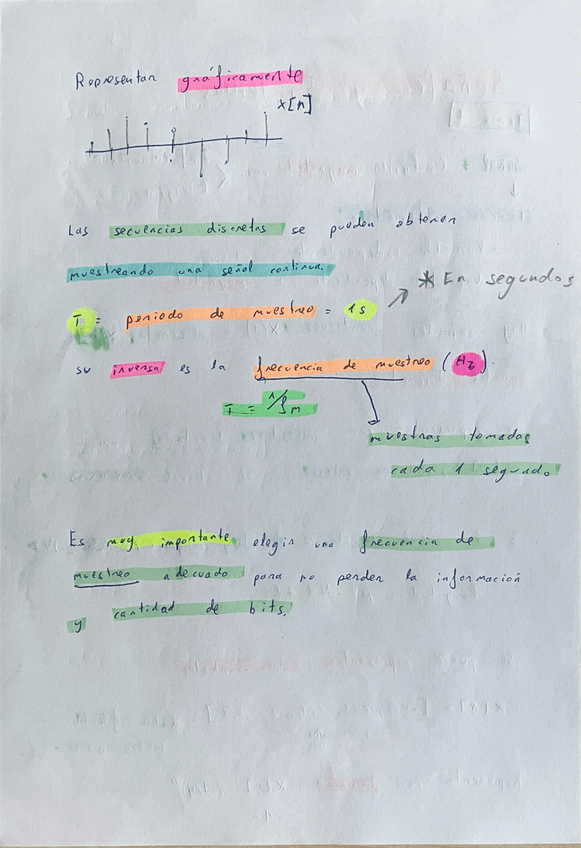 Representar gráficamente
x[n]
Las secuencias discretas se pueden obtener
muestreando una señal continua.
T = periodo de muestreo = 1s
* En segundos
su inversa es la frecuencia de muestreo (Hz).
T = 1/fm
muestras tomadas
cada 1 segundo
Es muy importante elegir una frecuencia de
muestreo adecuado para no perder la información
y cantidad de bits.